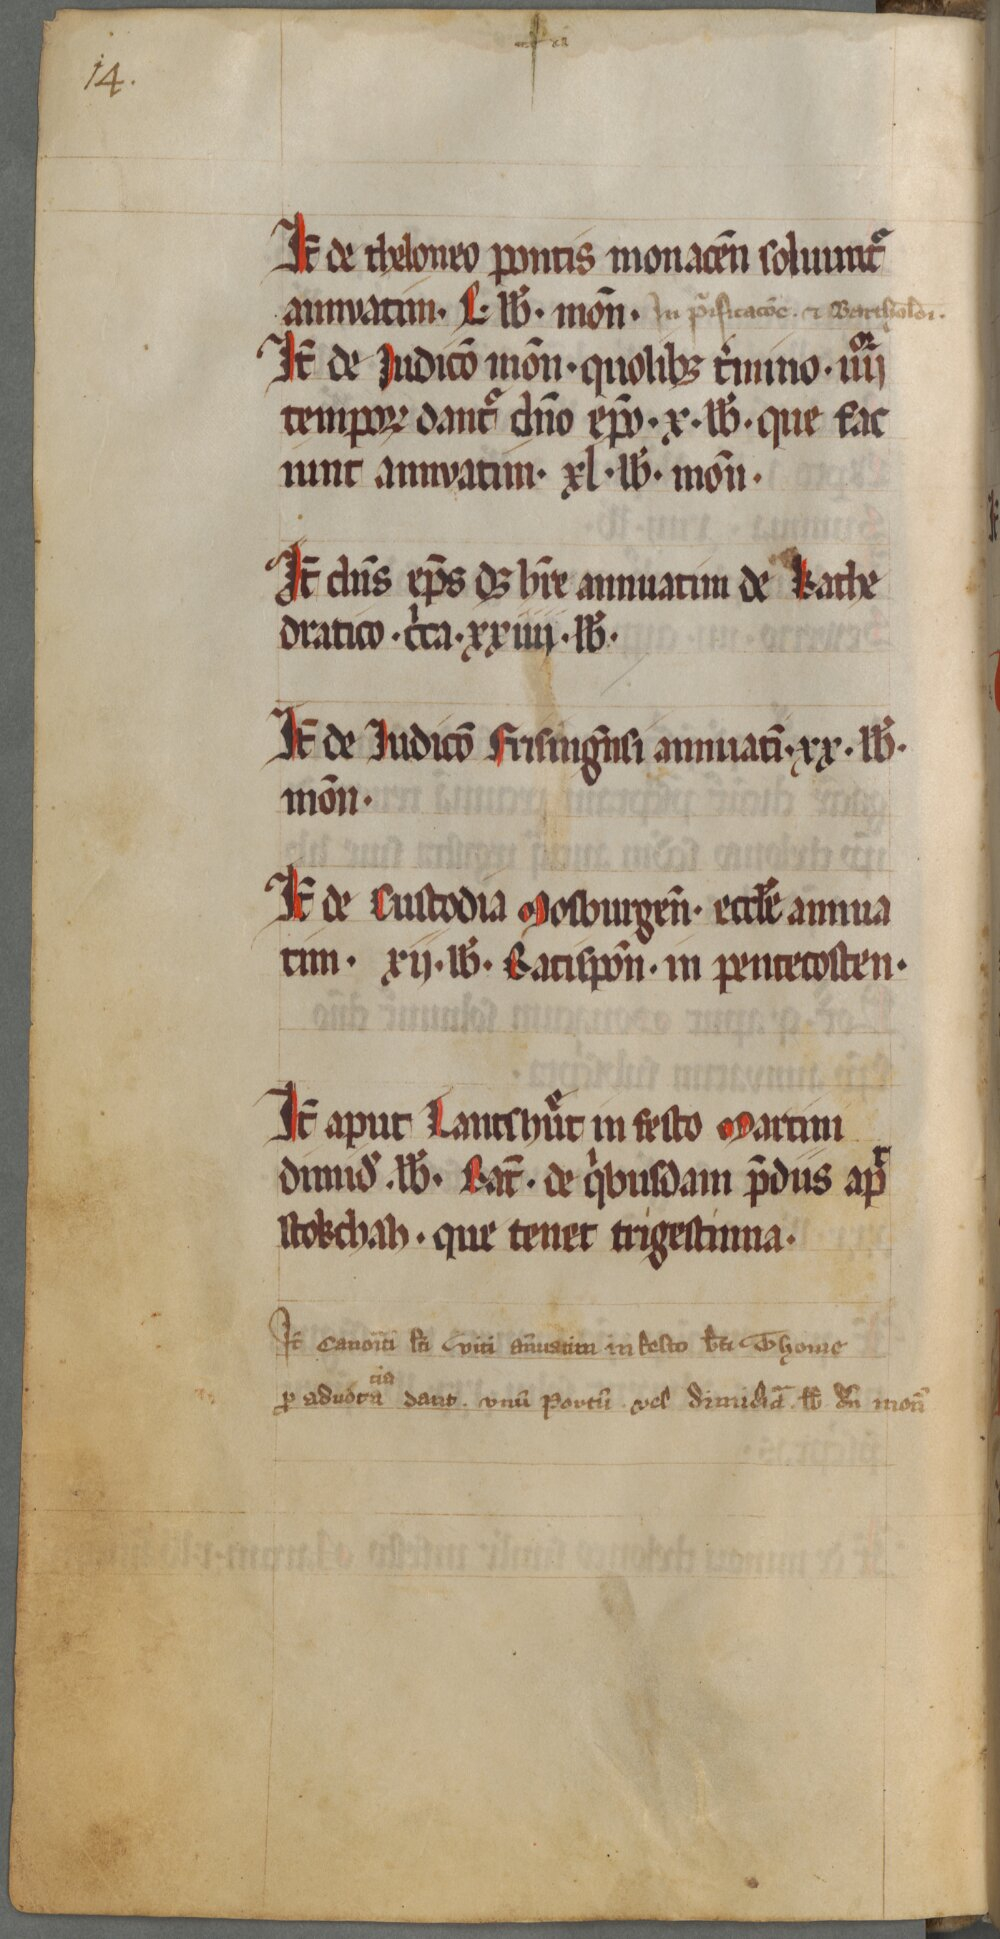 14.
It̄ de theloneo pontis monacen̄ soluunt᷑
annvatim · L · lb̄ · mon̄ · In purificacōe · et Bartholdi ·
It̄ de Judicō mon̄ · quolibꝫ t̄mino · iiijor
temporꝝ dant᷑ dn̄o ep̄o · x · lb̄ · que fac
iunt annvatim · xl · lb̄ · mon̄ ·
It̄ dn̄s ep̄s dꝫ hr̄e annuatim de Kathe
dratico · cͥca · xxiiij · lb̄ ·
It̄ de Judicō Frisingn̄si annuatī · xx · lb̄ ·
mon̄ ·
It̄ de Custodia Mosburgen̄ · eccl̄ie annua
tim · xij · lb̄ · Ratispon̄ · in pentecosten ·
It̄ aput Lantshůt in festo Martini
dimid̄ · lb̄ · Rat̄ · de qͥbusdam p̄diis apᷣ
stokchah · que tenet trigestinna ·
It̄ Canoīci sc̄i viti an̄uatim in festo bt̄i Thome
ꝑ aduocatia dant · vnū porcū vel dimidiā · lb̄ dn̄ mon̄